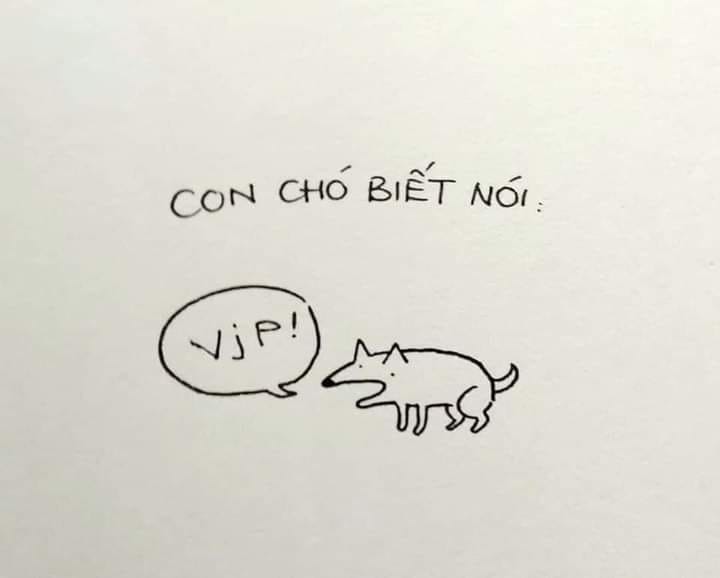 CON CHÓ BIẾT NÓI:
VjP!